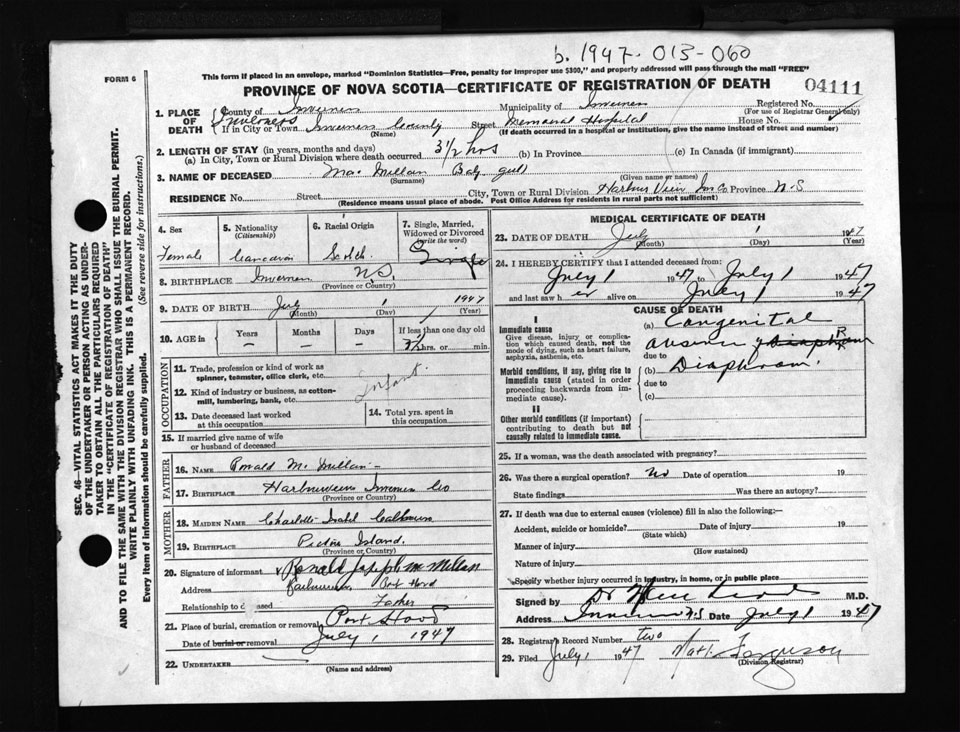 b. 1947-013-060
FORM 6
This form if placed in an envelope, marked "Dominion Statistics—Free, penalty for improper use $300," and properly addressed will pass through the mail "FREE"
PROVINCE OF NOVA SCOTIA—CERTIFICATE OF REGISTRATION OF DEATH
04111
1. PLACE OF DEATH
County of Inverness Municipality of Inverness Registered No.
(For use of Registrar General only)
If in City or Town Inverness County Street Memorial Hospital House No.
(Name) (If death occurred in a hospital or institution, give the name instead of street and number)
2. LENGTH OF STAY (in years, months and days)
(a) In City, Town or Rural Division where death occurred 3½ hrs (b) In Province (c) In Canada (if immigrant)
3. NAME OF DECEASED Mac Millan Baby girl
(Surname) (Given name or names)
RESIDENCE No. Street City, Town or Rural Division Harbour View Inv Co Province N-S
(Residence means usual place of abode. Post Office Address for residents in rural parts not sufficient)
4. Sex
Female
5. Nationality
(Citizenship)
Canadian
6. Racial Origin
Scotch
7. Single, Married, Widowed or Divorced
(write the word)
Single
8. BIRTHPLACE Inverness N.S.
(Province or Country)
9. DATE OF BIRTH July 1 1947
(Month) (Day) (Year)
10. AGE in
Years Months Days If less than one day old
— — — 3½ hrs. or min.
OCCUPATION
11. Trade, profession or kind of work as spinner, teamster, office clerk, etc.
12. Kind of industry or business, as cotton-mill, lumbering, bank, etc.
Infant
13. Date deceased last worked at this occupation
14. Total yrs. spent in this occupation
15. If married give name of wife or husband of deceased
FATHER
16. NAME Ronald McMillan
17. BIRTHPLACE Harbourview Inverness Co
(Province or Country)
MOTHER
18. MAIDEN NAME Charlotte Isabel Calhoun
19. BIRTHPLACE Pictou Island.
(Province or Country)
20. Signature of informant Ronald Joseph McMillan
Address Harbourview Port Hood
Relationship to deceased Father
21. Place of burial, cremation or removal Port Hood
Date of burial or removal July 1 1947
22. UNDERTAKER
(Name and address)
MEDICAL CERTIFICATE OF DEATH
23. DATE OF DEATH July 1 1947
(Month) (Day) (Year)
24. I HEREBY CERTIFY that I attended deceased from
July 1 1947 to July 1 1947
and last saw h er alive on July 1 1947
CAUSE OF DEATH
I
Immediate cause
Give disease, injury or complication which caused death, not the mode of dying, such as heart failure, asphyxia, asthenia, etc.
(a) Congenital
due to
Morbid conditions, if any, giving rise to immediate cause (stated in order proceeding backwards from immediate cause).
(b) Diaphram
due to
(c)
II
Other morbid conditions (if important) contributing to death but not causally related to immediate cause.
25. If a woman, was the death associated with pregnancy?
26. Was there a surgical operation? No Date of operation 19
State findings Was there an autopsy?
27. If death was due to external causes (violence) fill in also the following:—
Accident, suicide or homicide? Date of injury 19
(State which)
Manner of injury
(How sustained)
Nature of injury
Specify whether injury occurred in industry, in home, or in public place
Signed by Dr M.D.
Address Inverness N.S Date July 1 1947
28. Registrar's Record Number two
29. Filed July 1 1947 Ferguson
(Division Registrar)
SEC. 46—VITAL STATISTICS ACT MAKES IT THE DUTY
OF THE UNDERTAKER OR PERSON ACTING AS UNDER-
TAKER TO OBTAIN ALL THE PARTICULARS REQUIRED
IN THE "CERTIFICATE OF REGISTRATION OF DEATH"
AND TO FILE THE SAME WITH THE DIVISION REGISTRAR WHO SHALL ISSUE THE BURIAL PERMIT.
WRITE PLAINLY WITH UNFADING INK. THIS IS A PERMANENT RECORD.
Every item of information should be carefully supplied. (See reverse side for instructions.)